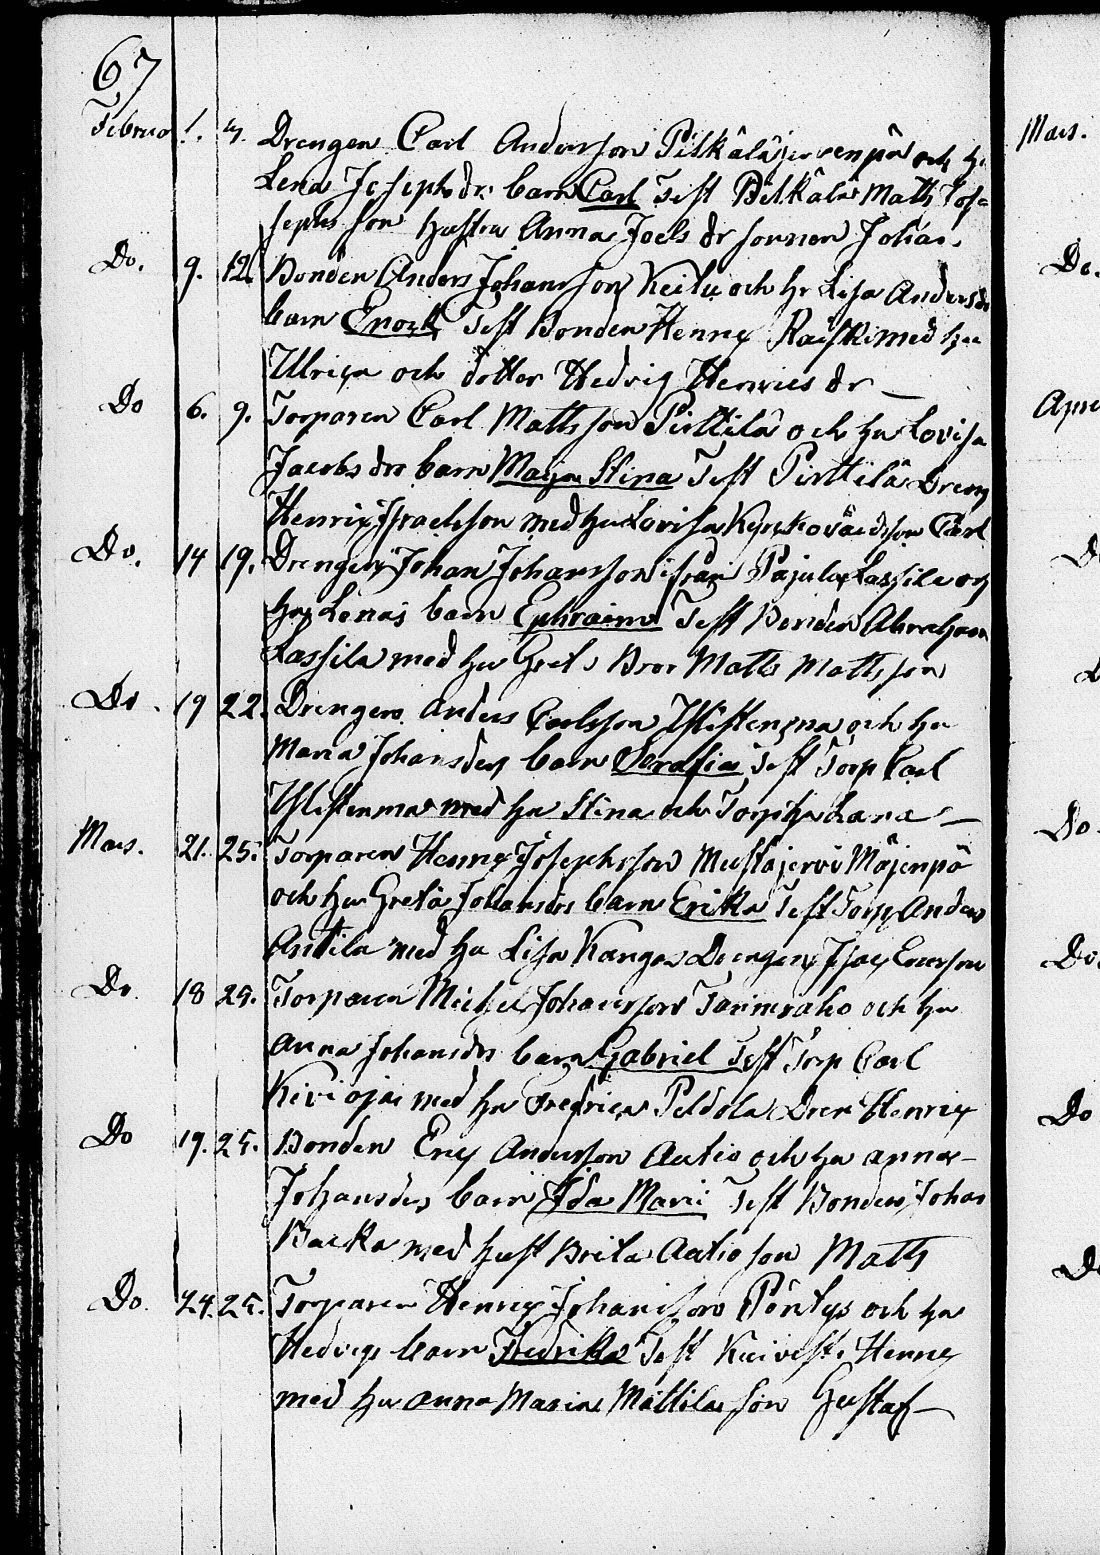 67
Februa 1. 4. Drengen Carl Andersson Pitkäläjervenpä och hu
Lena Josephsdr: barn Carl Test Pitkälä Matts Jose
sephs son hustru Anna Joels dr sonnen Johan.
Do. 9. 12. Bonden Anders Johansson Keitu och hr Lisa Andersdr
barn Enock Test Bonden Henric Raiski med hu
Ulrica och dotter Hedvig Henrics dr
Do 6. 9. Torparen Carl Mattsson Pirttilä och hu Lovisa
Jacobs dro barn Maja Stina Test Pirttilä Dreng
Henric Isracksson med hu Lovisa Carl
Do. 14 19. Drengen Johan Johansson ifrån Pajula Lassila og
hu Lenas barn Ephraim Test Bonden Abraham
Lassila med hu Greta Bror Matts Mattsson
Do. 19 22. Drengen Anders Carlsson och hu
Maria Johansdr barn Serafia Test Torp Carl
med hu Stina och Torp hu Lana —
Mars. 21. 25. Torparen Henric Josephsson Mustajervi Mäjenpä
och hu Greta Johansdrs barn Erika Test Torp Anders
Antila med hu Lisa Kangas Drengen Isac Ericsson
Do. 18 25. Torparen Michel Johansson och hu
Anna Johansdrs barn Gabriel Test Torp Carl
Kivioja med hu Fredrica Peldola Dren Henric
Do 19. 25. Bonden Eric Andersson Autio och hu anna
Johansdrs barn Ida Maria Test Bonden Johan
Backa med hust Brita Autio son Matts
Do. 24. 25. Torparen Henric Johansson Pöntys och hu
Hedvigs barn Fredrika Test Kuivisti Henric
med hu Anna Maria Mattila son Gustaf —
Mars.
Do.
Apr
Do.
Do.
Do